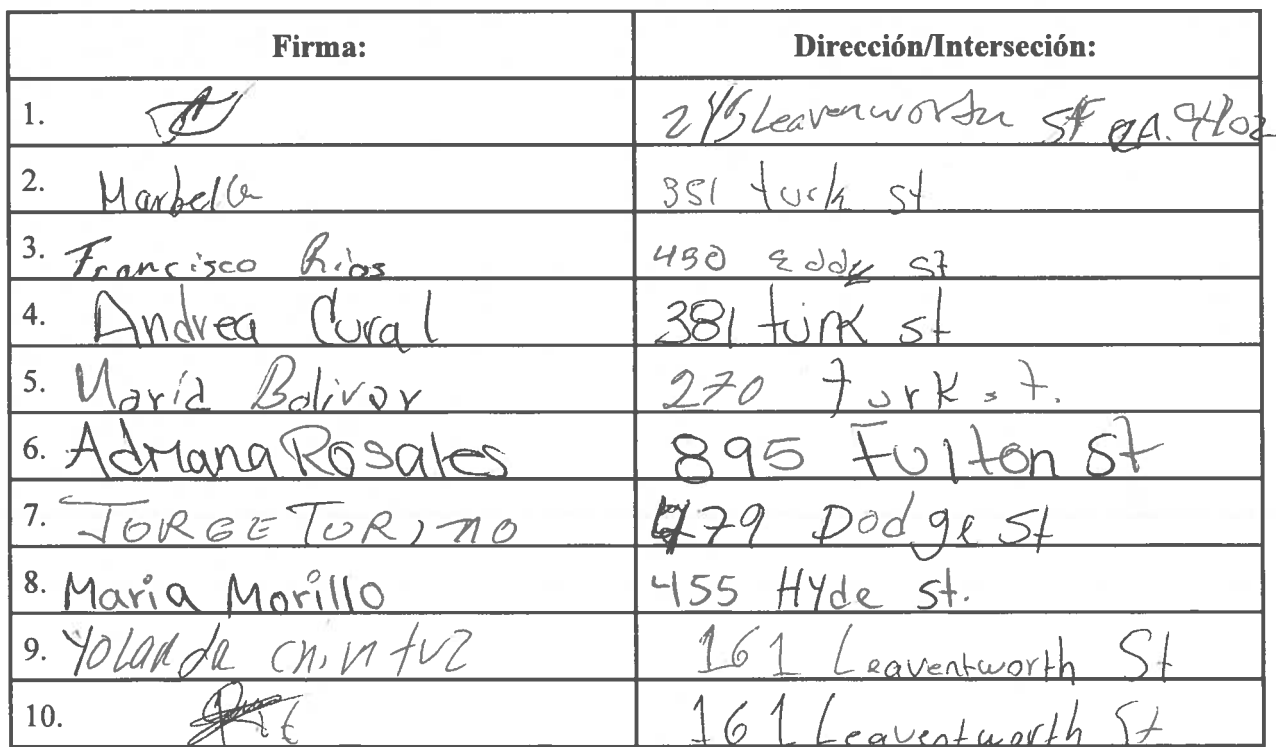 Firma: Dirección/Interseción:
1. 245 Leavenworth St
2. Marbella 351 turk st
3. Francisco Rios 450 Eddy st
4. Andrea Cural 381 turk st
5. María Bolivar 270 Turk st.
6. Adriana Rosales 895 Fulton St
7. JORGE TORINO 479 Dodge St
8. Maria Morillo 455 Hyde St.
9. Yolanda chintuz 161 Leaventworth St
10. 161 Leaventworth St